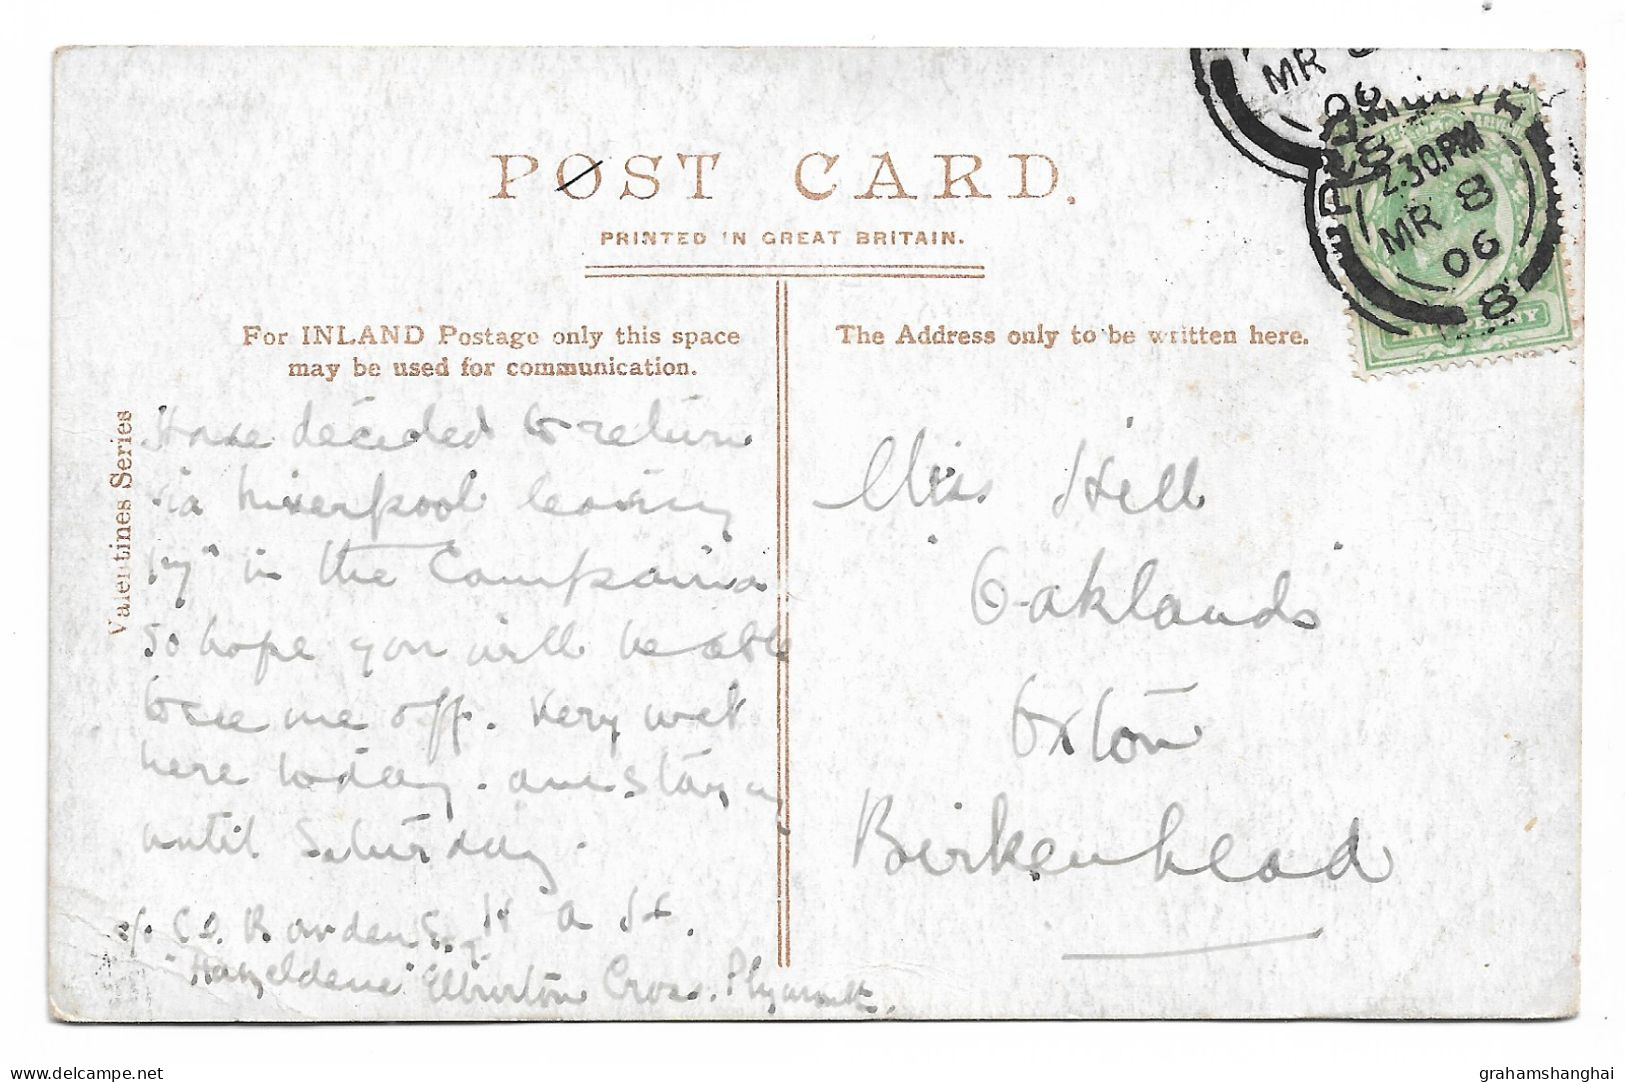 POST CARD.
PRINTED IN GREAT BRITAIN.
For INLAND Postage only this space
may be used for communication.
The Address only to be written here.
Valentines Series
MR 8
06
2.30.PM
MR 8
06
8
HALFPENNY
Have decided to return
via Liverpool leaving
17" in the Campania
so hope you will be able
to see me off. Very wet
here today. am staying
until Saturday.
H A H.
c/o C.E. Bowden Esq
"Hazeldene" Elburton Cross. Plymouth.
Miss Hill
"Oaklands"
Oxton
Birkenhead
grahamshanghai